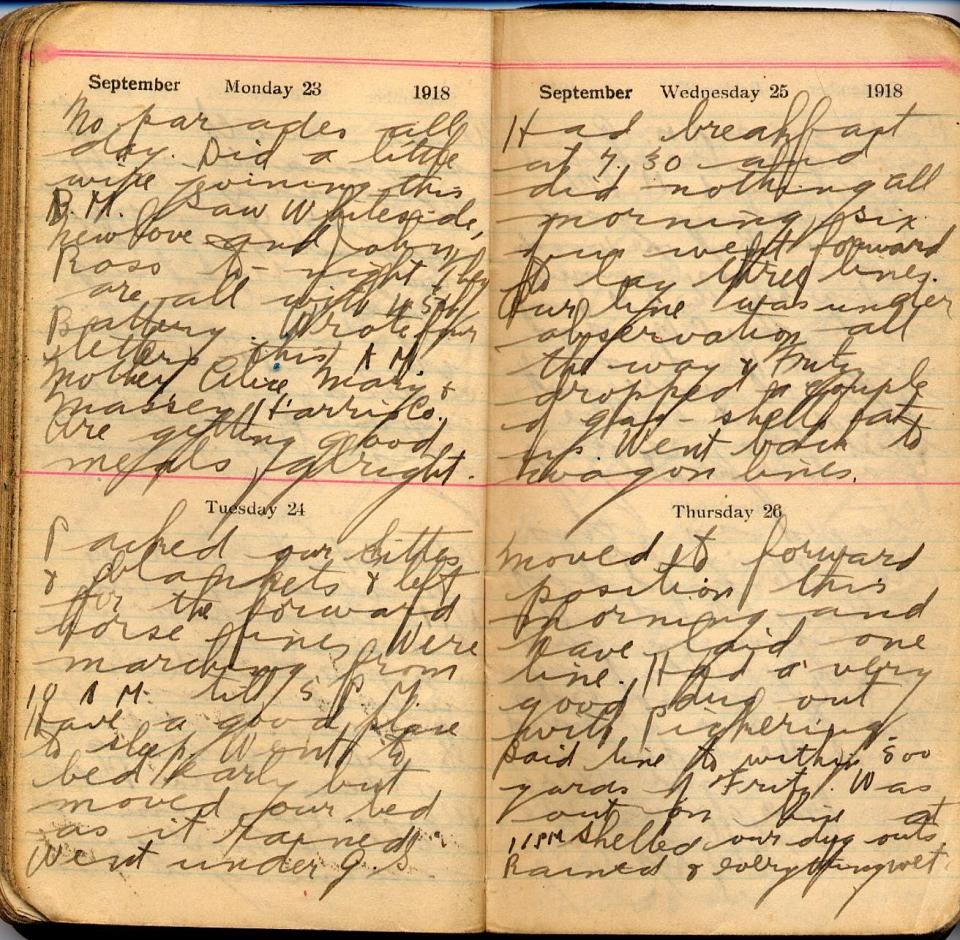 September Monday 23 1918
No parades all
day. Did a little
wire joining this
P.M. Saw Whiteside,
Newlove and John
Ross to-night they
are all with 4 5th
Battery. Wrote four
letters this A M.
Mother Alice Mary &
Massey Harris Co.
Are getting good
meals alright.
Tuesday 24
Packed our kittes
& blankets & left
for the forward
horse lines. Were
marching from
10 A M. till 5 P M.
Have a good place
to sleep. Went to
bed early but
moved our bed
as it rained
Went under G.S.
September Wednesday 25 1918
Had breakfast
at 7.30 and
did nothing all
morning, six
went forward
to lay three lines.
Our line was under
observation all
the way & Fritz
dropped a couple
of gas-shells at
us. Went back to
wagon lines.
Thursday 26
Moved to forward
position this
morning and
have laid one
line. Had a very
good dug out
with Pickering
Laid line to within 500
yards of Fritz. Was
out on line at
11 PM shelled our dug outs
Rained & everything wet